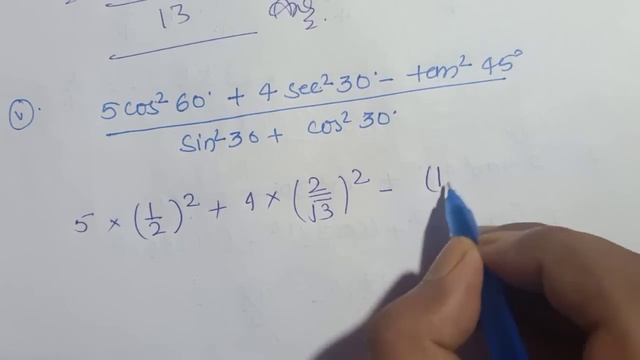 13 Ans
(v). 5cos² 60° + 4 sec² 30° - tan² 45°
sin² 30 + cos² 30°
5 × (1/2)² + 4 × (2/√3)² - (1